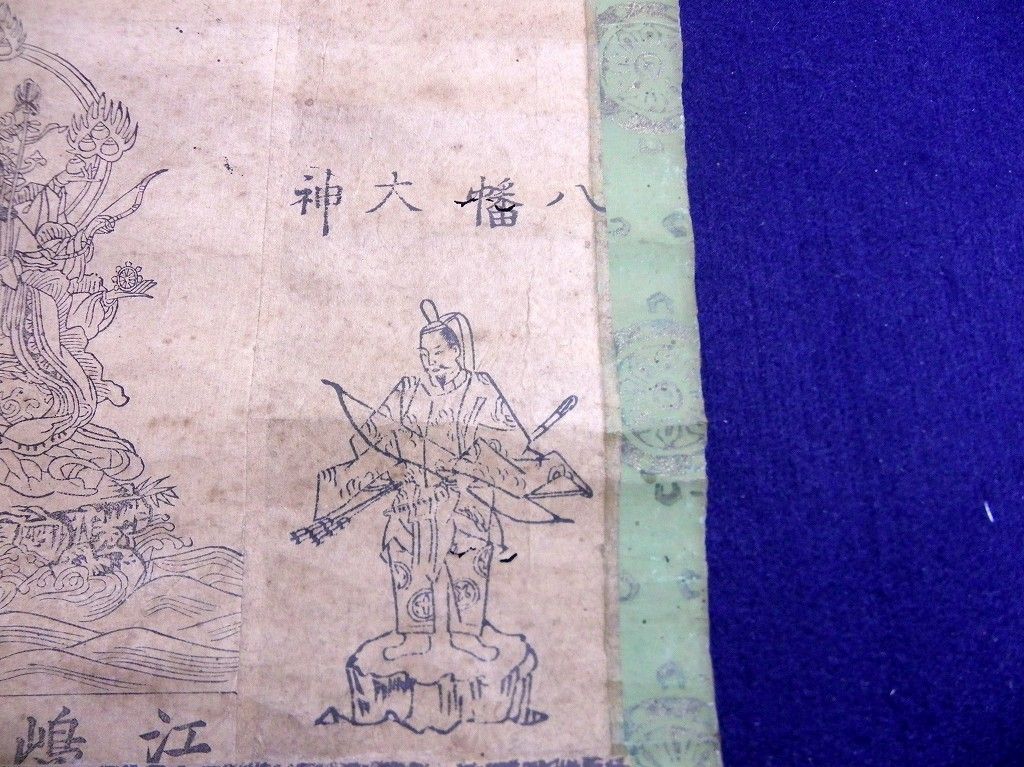 八幡大神
江嶋